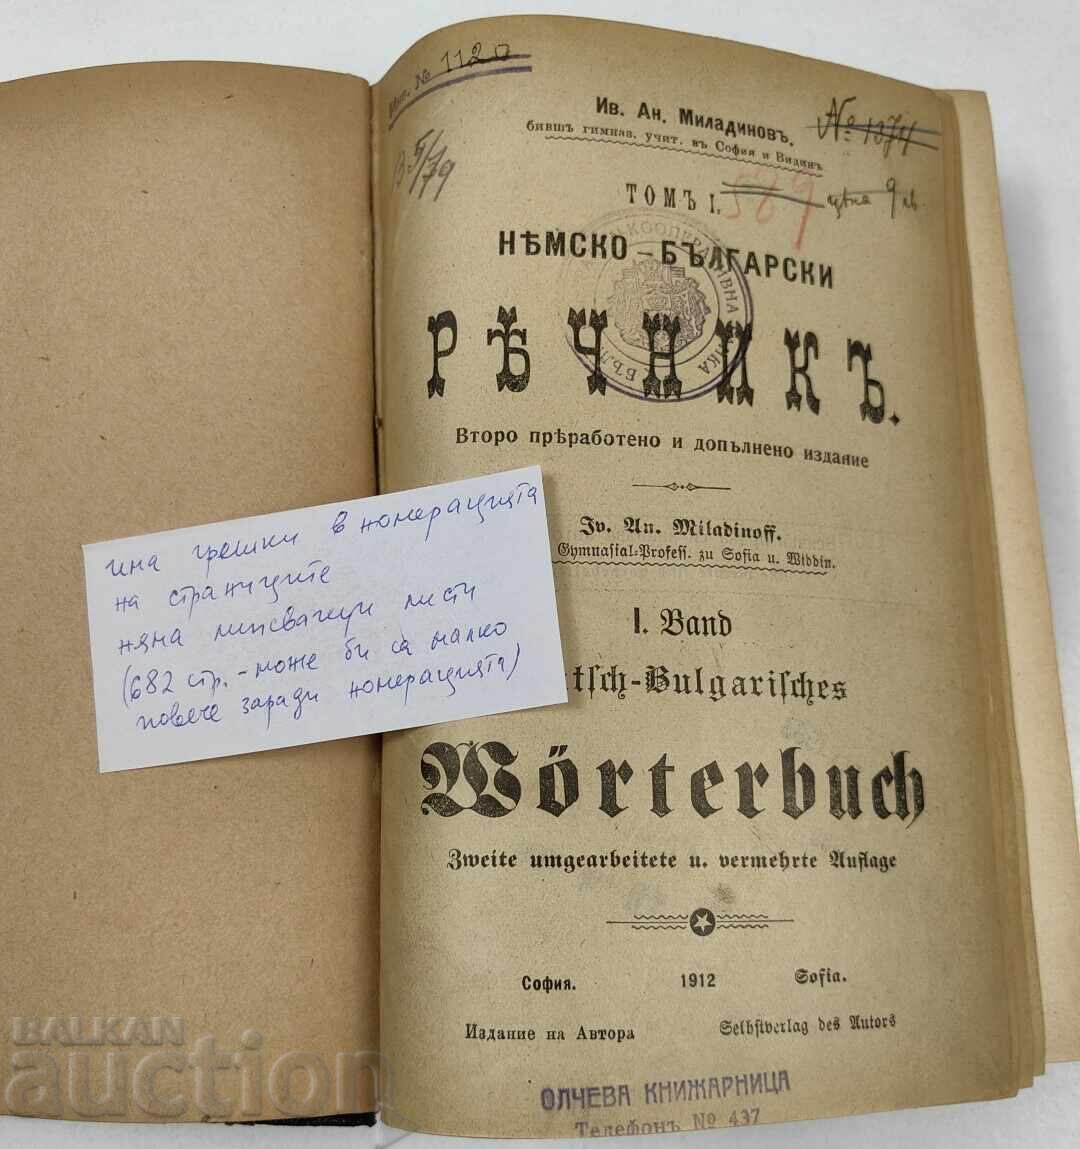 Инв. № 1120
В 5/79
№ 1374
Ив. Ан. Миладиновъ.
бившъ гимназ. учит. въ София и Видинъ
ТОМЪ I.
589
цѣна 9 лв.
НѢМСКО-БЪЛГАРСКИ
РѢЧНИКЪ.
Второ прѣработено и допълнено издание
Iv. An. Miladinoff.
Gymnasial-Profess. zu Sofia u. Widdin.
I. Band
tsch-Bulgarisches
Wörterbuch
Zweite umgearbeitete u. vermehrte Auflage
София. 1912 Sofia.
Издание на Автора Selbstverlag des Autors
ОЛЧЕВА КНИЖАРНИЦА
Телефонъ № 437
има грешки в номерацията
на страниците
няма липсващи листи
(682 стр. - може би са малко
повече заради номерацията)
BALKAN
auction